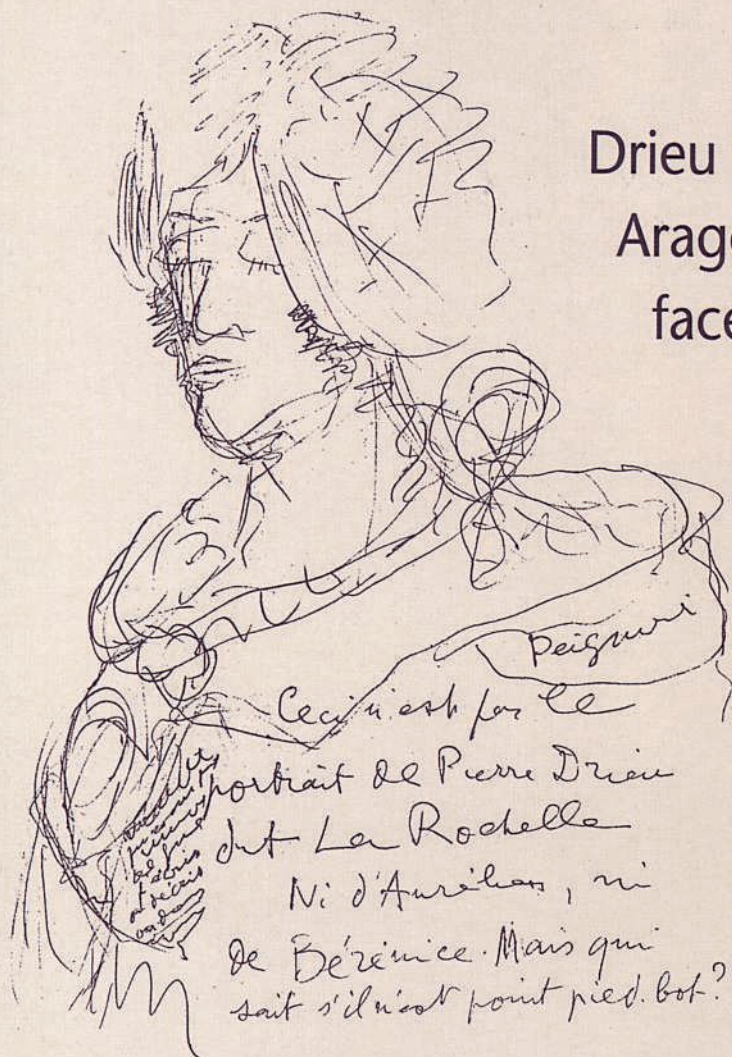 Drieu
Arag
face
Peignoir
Ceci n'est pas le
portrait de Pierre Drieu
dit La Rochelle
Ni d'Aurélien, ni
de Bérénice. Mais qui
sait s'il n'est point pied-bot?